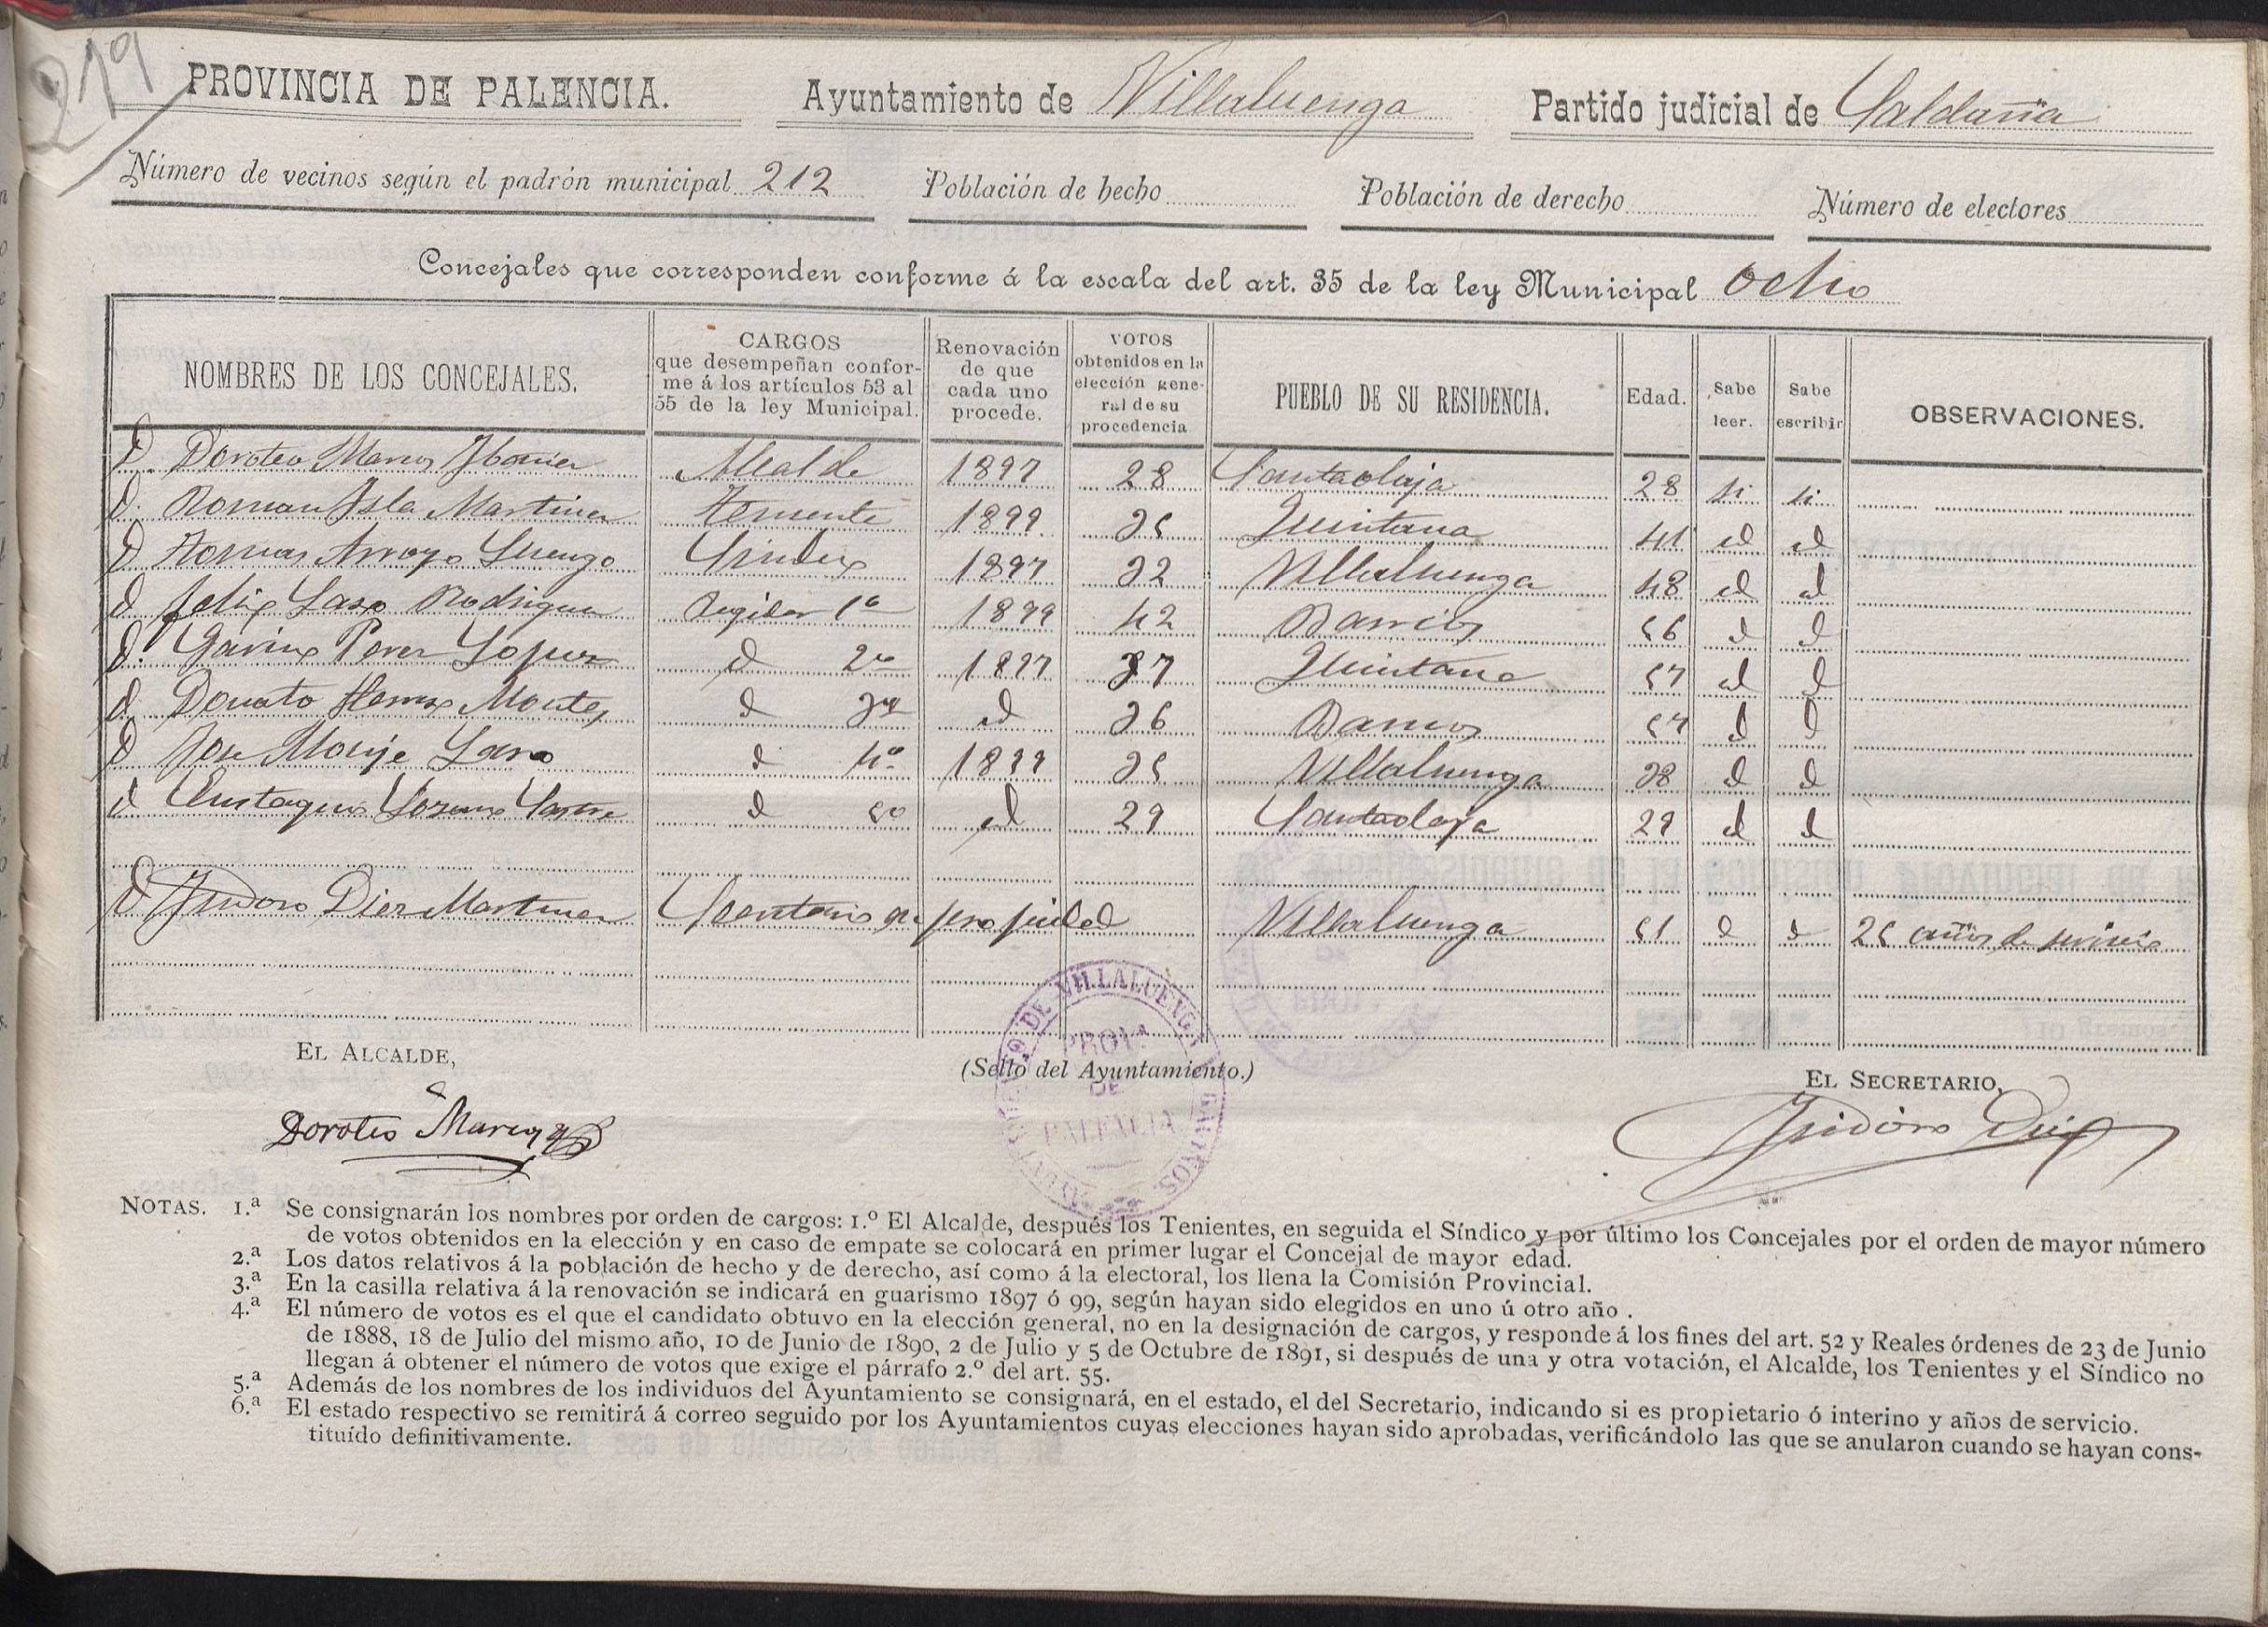 219
PROVINCIA DE PALENCIA. Ayuntamiento de Villaluenga Partido judicial de Saldaña
Número de vecinos según el padrón municipal 212 Población de hecho Población de derecho Número de electores
Concejales que corresponden conforme á la escala del art. 35 de la ley Municipal ocho
NOMBRES DE LOS CONCEJALES. CARGOS que desempeñan conforme á los artículos 53 al 55 de la ley Municipal. Renovación de que cada uno procede. VOTOS obtenidos en la elección general de su procedencia PUEBLO DE SU RESIDENCIA. Edad. Sabe leer. Sabe escribir OBSERVACIONES.
D. Doroteo Marcos Ibañez Alcalde 1897 28 Santaolaja 28 si si
D. Roman Isla Martinez Teniente 1899 25 Quintana 41 id id
D Tomas Arroyo Luengo Sindico 1897 32 Villaluenga 48 id id
D Felix Laso Rodriguez Regidor 1º 1899 42 Barrios 56 id id
D. Perez Lopez id 2º 1897 37 Quintana 57 id id
D. Donato Montes id 3º id 36 Barrios 57 id id
D Jose Monje Laso id 4º 1899 35 Villaluenga 38 id id
D Eustaquio Lozano id 5º id 29 Santaolaja 29 id id
D Isidoro Diez Martinez Secretario en propiedad Villaluenga 51 id id 25 años de servicio
EL ALCALDE, (Sello del Ayuntamiento.) EL SECRETARIO,
DE VILLALUENGA
PROVª
DE
PALENCIA
Doroteo Marcos Isidoro Diez
NOTAS. 1.ª Se consignarán los nombres por orden de cargos: 1.º El Alcalde, después los Tenientes, en seguida el Síndico y por último los Concejales por el orden de mayor número
de votos obtenidos en la elección y en caso de empate se colocará en primer lugar el Concejal de mayor edad.
2.ª Los datos relativos á la población de hecho y de derecho, así como á la electoral, los llena la Comisión Provincial.
3.ª En la casilla relativa á la renovación se indicará en guarismo 1897 ó 99, según hayan sido elegidos en uno ú otro año .
4.ª El número de votos es el que el candidato obtuvo en la elección general, no en la designación de cargos, y responde á los fines del art. 52 y Reales órdenes de 23 de Junio
de 1888, 18 de Julio del mismo año, 10 de Junio de 1890, 2 de Julio y 5 de Octubre de 1891, si después de una y otra votación, el Alcalde, los Tenientes y el Síndico no
llegan á obtener el número de votos que exige el párrafo 2.º del art. 55.
5.ª Además de los nombres de los individuos del Ayuntamiento se consignará, en el estado, el del Secretario, indicando si es propietario ó interino y años de servicio.
6.ª El estado respectivo se remitirá á correo seguido por los Ayuntamientos cuyas elecciones hayan sido aprobadas, verificándolo las que se anularon cuando se hayan cons-
tituído definitivamente.